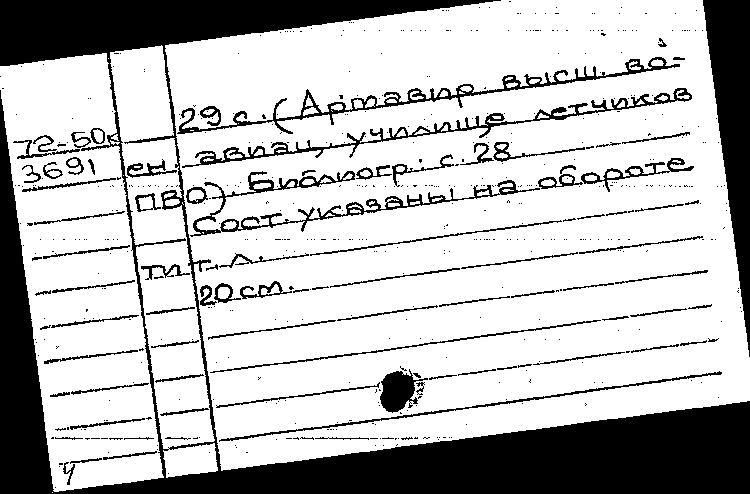 29 с. (Армавир. высш. во-
72-50к
3691 ен. авиац. училище летчиков
ПВО). Библиогр.: с. 28.
Сост. указаны на обороте
тит. л.
20 см.